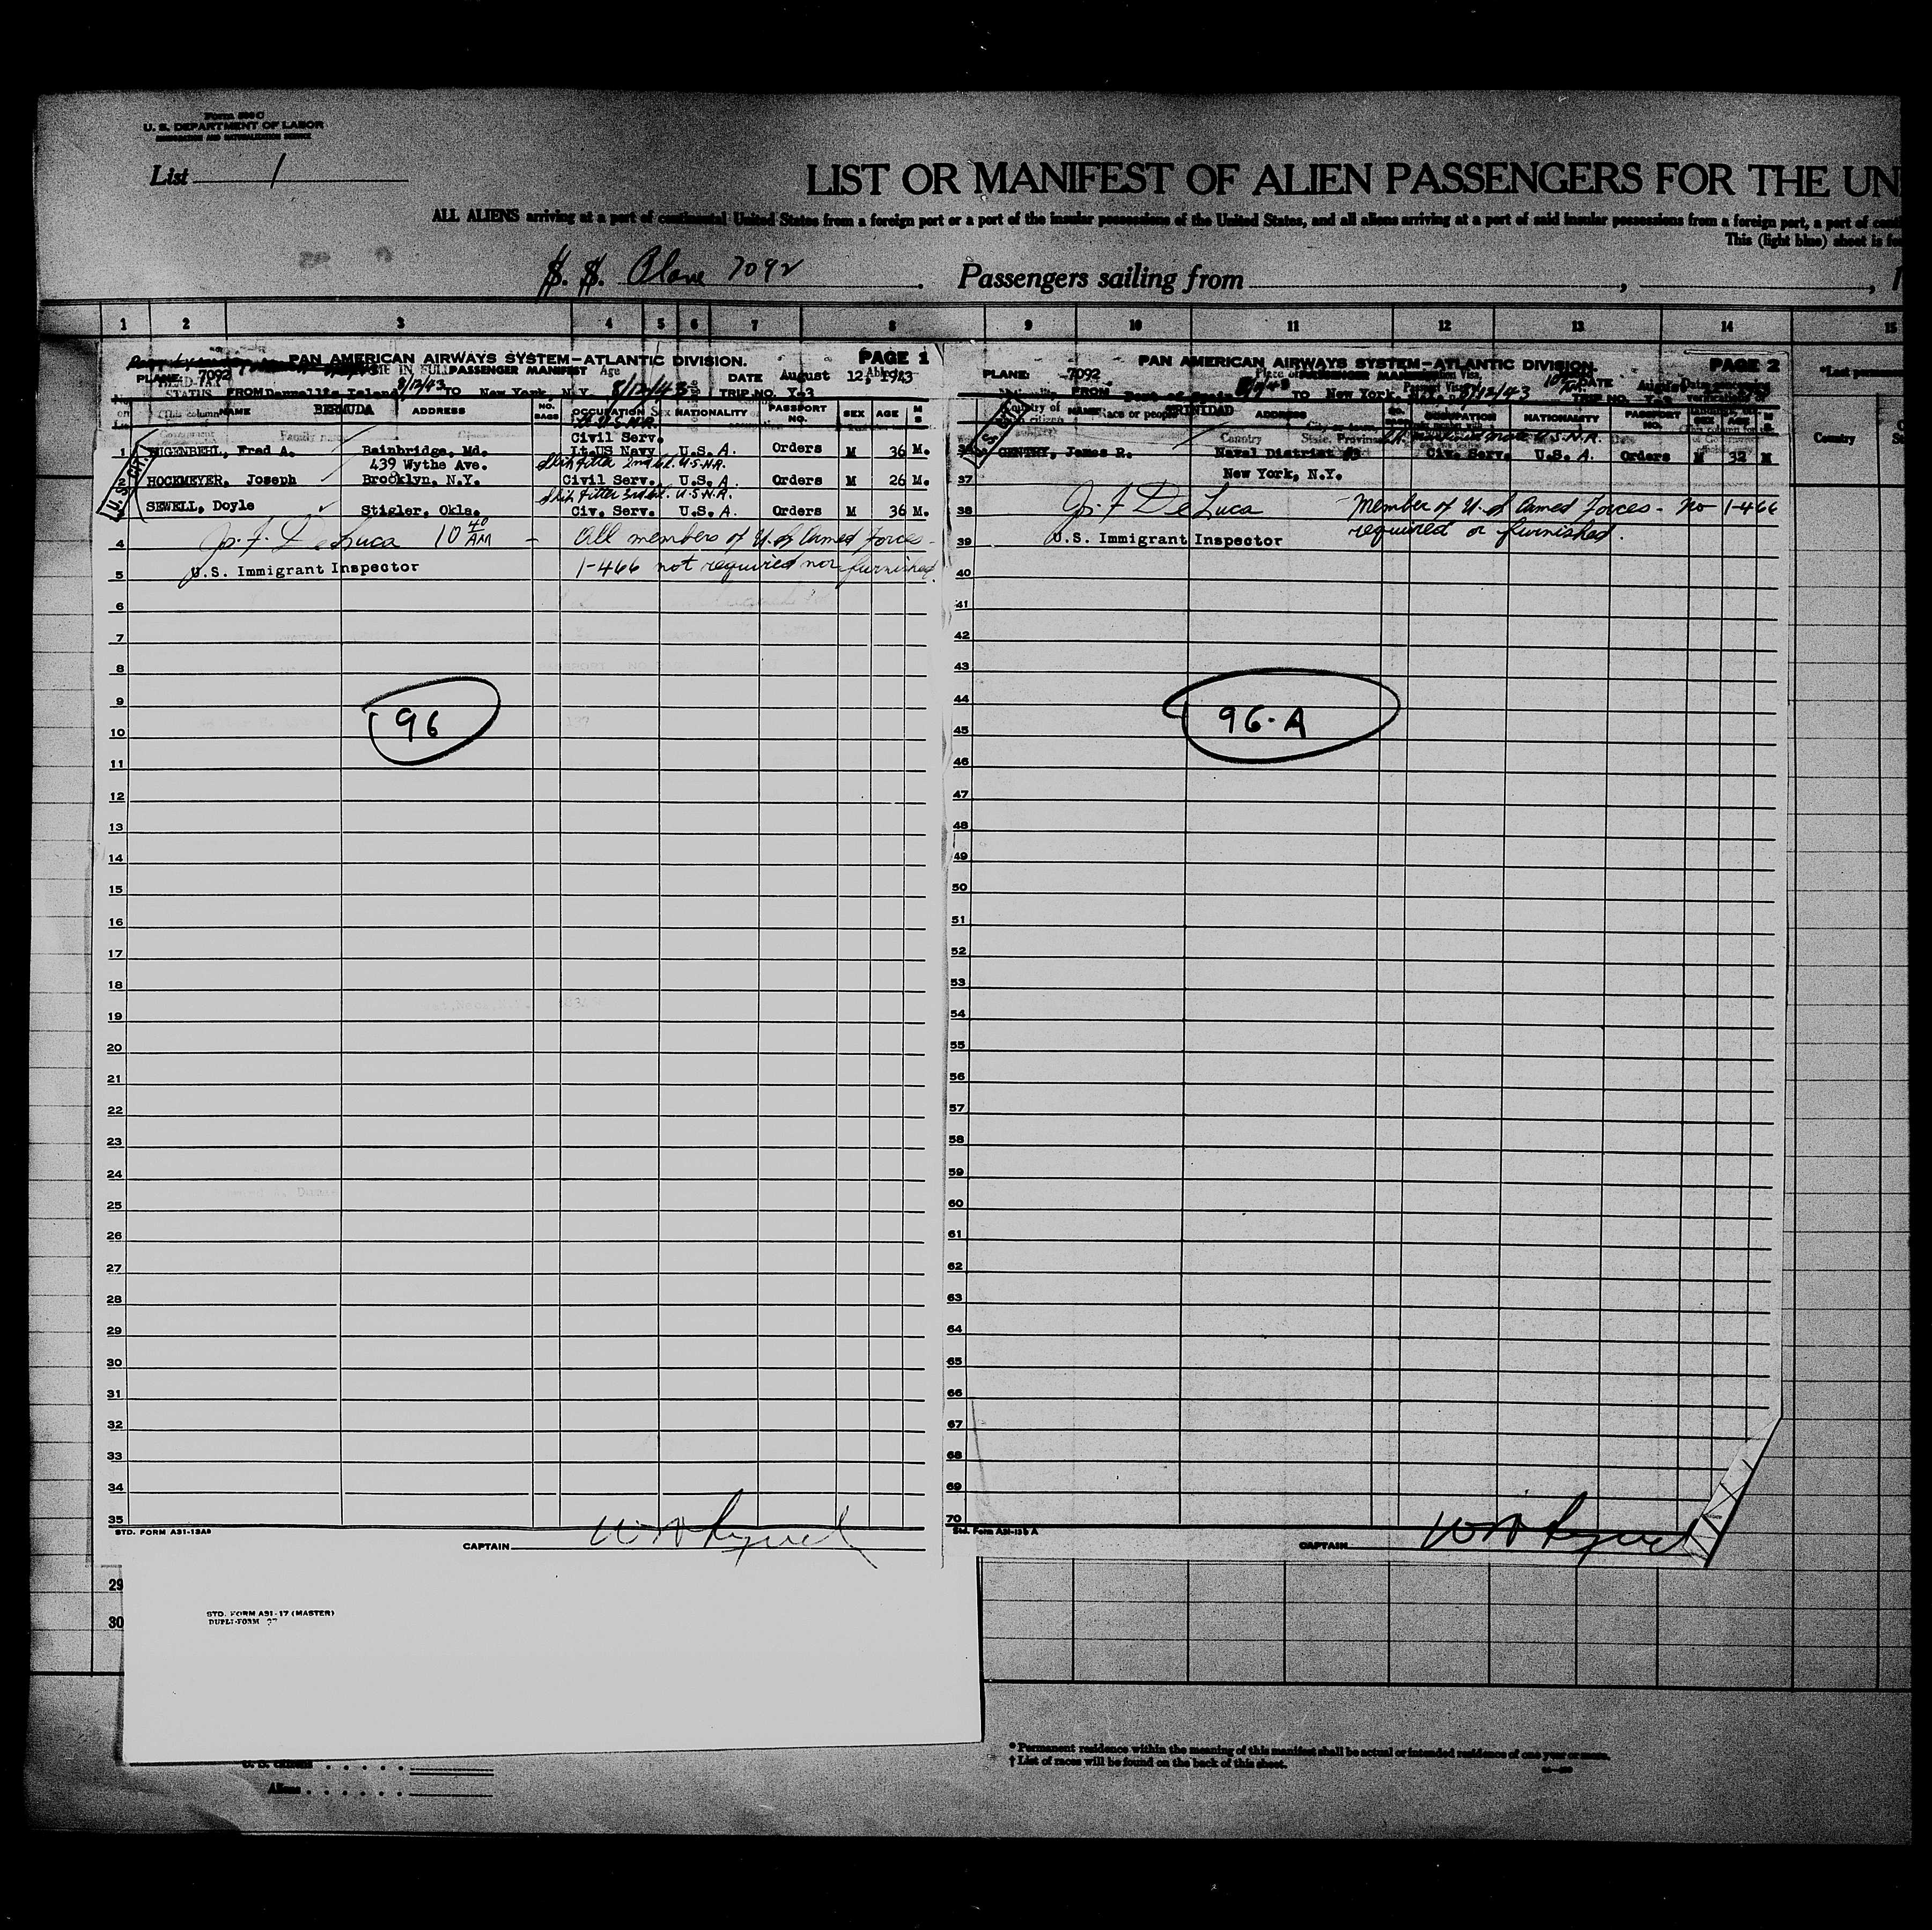 U. S. DEPARTMENT OF LABOR
List 1
LIST OR MANIFEST OF ALIEN PASSENGERS FOR THE UN
ALL ALIENS arriving at a port of continental United States from a foreign port or a port of the insular possessions of the United States, and all aliens arriving at a port of said insular possessions from a foreign port, a port of
This (light blue) sheet is
S. S. Plane 7092 . Passengers sailing from , ,
1 2 3 4 5 6 7 8 9 10 11 12 13 14 15
PAN AMERICAN AIRWAYS SYSTEM—ATLANTIC DIVISION. PAGE 1
PASSENGER MANIFEST
PLANE: 7092 DATE August 12, 1943
FROM Darrell's Island 8/12/43 TO New York, N.Y. 8/12/43 TRIP NO. Y-3
BERMUDA
NAME ADDRESS NO. BAGS OCCUPATION NATIONALITY PASSPORT NO. SEX AGE M S
U.S.N.R.
Civil Serv.
1 Fred A. Bainbridge, Md. Lt. US Navy U.S.A. Orders M 36 M.
439 Wythe Ave. 2nd cl. U.S.N.R.
2 HOCKMEYER, Joseph Brooklyn, N.Y. Civil Serv. U.S.A. Orders M 26 M.
3rd cl. U.S.N.R.
SEWELL, Doyle Stigler, Okla. Civ. Serv. U.S.A. Orders M 36 M.
U.S. CIT.
4 Jos. F. DeLuca 10 40 AM - All members of U.S. Armed Forces -
5 U.S. Immigrant Inspector 1-466 not required nor furnished.
6
7
8
9
96
10
11
12
13
14
15
16
17
18
19
20
21
22
23
24
25
26
27
28
29
30
31
32
33
34
35
STD. FORM A31-13A
CAPTAIN
PAN AMERICAN AIRWAYS SYSTEM—ATLANTIC DIVISION. PAGE 2
PASSENGER MANIFEST
PLANE: 7092 DATE August
FROM Port of Spain TO New York, N.Y. 8/12/43 TRIP NO. Y-3
TRINIDAD
NAME ADDRESS OCCUPATION NATIONALITY PASSPORT NO. SEX AGE M S
U.S.N.R.
GENTRY, James R. Naval District #3 Civ. Serv. U.S.A. Orders M 32 M
37 New York, N.Y.
38 Jos. F DeLuca - Member of U.S. Armed Forces - No 1-466
39 U.S. Immigrant Inspector required or furnished.
40
41
42
43
44
96-A
45
46
47
48
49
50
51
52
53
54
55
56
57
58
59
60
61
62
63
64
65
66
67
68
69
70
Std. Form A31-13b A
CAPTAIN
29
30
STD. FORM A31-17 (MASTER)
DUPLI-FORM
* Permanent residence within the meaning of this manifest shall be actual or intended residence of one year or more.
† List of races will be found on the back of this sheet.
Aliens